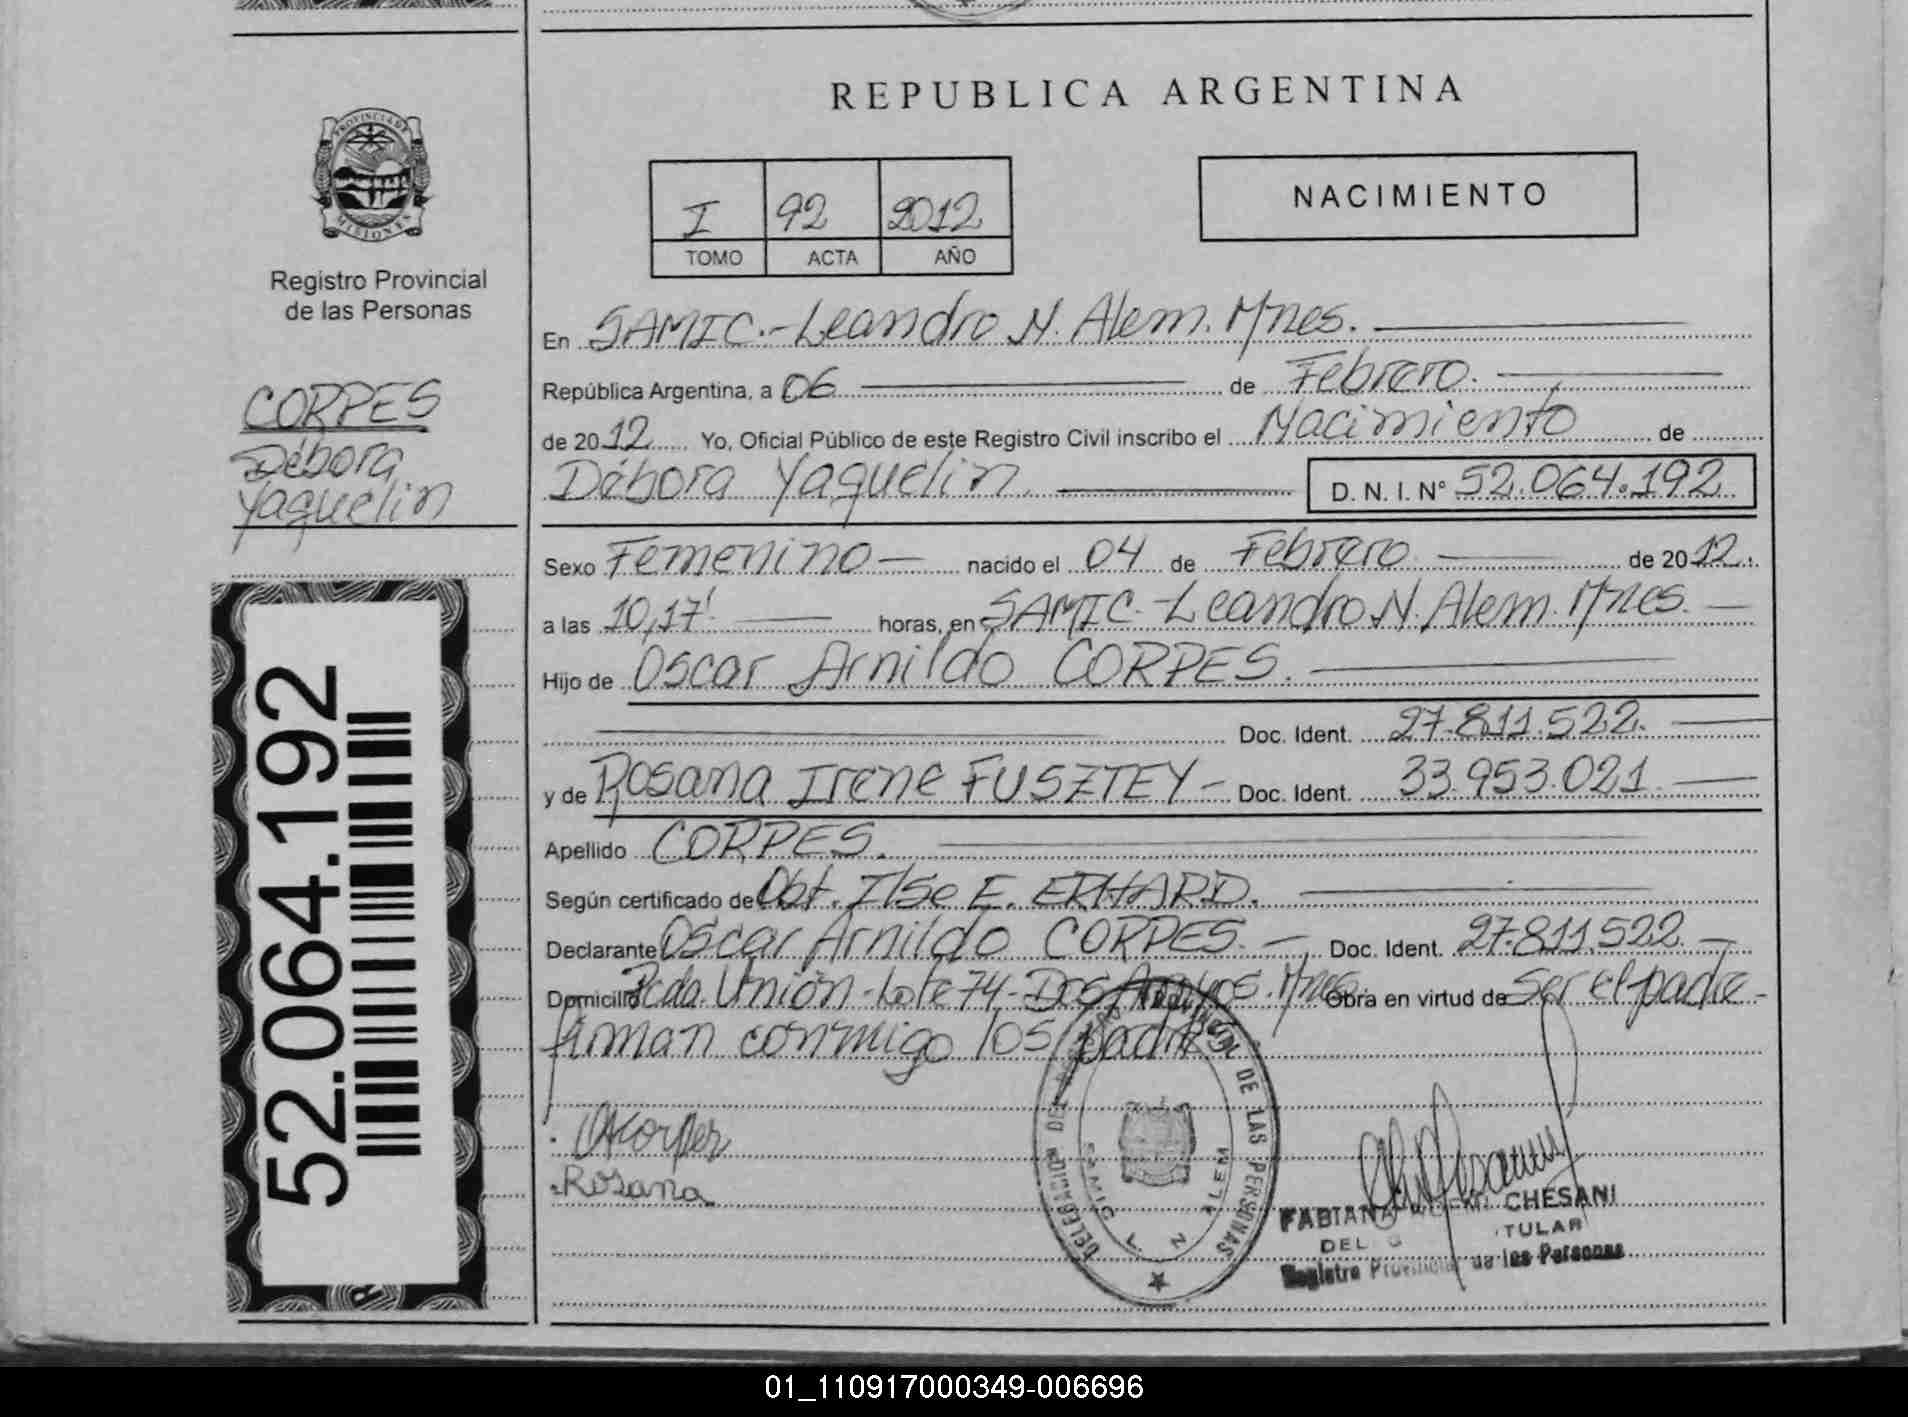 REPUBLICA ARGENTINA
PROVINCIA DE
MISIONES
Registro Provincial
de las Personas
I 92 2012
TOMO ACTA AÑO
NACIMIENTO
CORPES
Débora
Yaquelin
52.064.192
En SAMIC.-Leandro N. Alem. Mnes.
República Argentina, a 06 de Febrero.
de 2012 Yo, Oficial Público de este Registro Civil inscribo el Nacimiento de
Débora Yaquelin D. N. I. Nº 52.064.192
Sexo Femenino nacido el 04 de Febrero de 2012.
a las 10,17' horas, en SAMIC.-Leandro N. Alem. Mnes.
Hijo de Oscar Arnildo CORPES.
Doc. Ident. 27.811.522.
y de Rosana Irene FUSZTEY - Doc. Ident. 33.953.021.
Apellido CORPES.
Según certificado de Obt. Ilse E. ERHARD.
Declarante Oscar Arnildo CORPES. Doc. Ident. 27.811.522
Domicilio Pcda. Unión-Lote 74-Dos Arroyos. Mnes. Obra en virtud de ser el padre-
firman conmigo los padres
Rosana
DELEGACION DEL REGISTRO PROVINCIAL DE LAS PERSONAS
SAMIC L. N. ALEM
FABIANA CHESANI
TULAR
Registro Provincial de las Personas
01_110917000349-006696